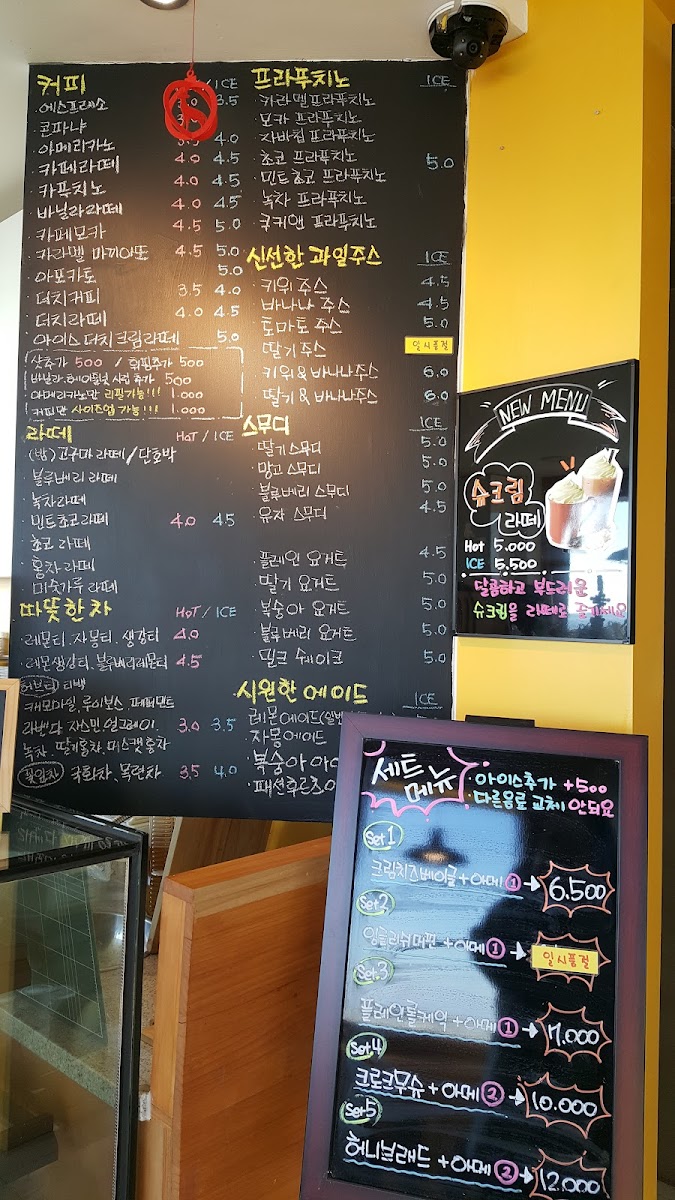 커피 / ICE
에스프레소 3.0 3.5
콘파냐
아메리카노 4.0
카페라떼 4.0 4.5
카푸치노 4.0 4.5
바닐라라떼 4.0 4.5
카페모카 4.5 5.0
카라멜 마끼아또 4.5 5.0
아포카토 5.0
더치커피 3.5 4.0
더치라떼 4.0 4.5
아이스더치크림라떼 5.0
샷추가 500 / 휘핑추가 500
바닐라.헤이즐넛 시럽 추가 500
아메리카노만 리필가능!!! 1.000
커피만 사이즈업 가능!!! 1.000
라떼 HOT / ICE
(밤)고구마라떼/단호박
블루베리 라떼
녹차라떼
민트쵸코라떼 4.0 4.5
쵸코 라떼
홍차 라떼
미숫가루 라떼
따뜻한차 HOT / ICE
레몬티、자몽티、생강티 4.0
레몬생강티、블루베리레몬티 4.5
허브티 티백
캐모마일、루이보스、페퍼민트
라벤다、자스민、얼그레이 3.0 3.5
녹차、딸기홍차、머스캣홍차
꽃잎차 국화차、목련차 3.5 4.0
프라푸치노 ICE
카라멜프라푸치노
모카 프라푸치노
자바칩 프라푸치노
쵸코 프라푸치노 5.0
민트쵸코 프라푸치노
녹차 프라푸치노
쿠키앤 프라푸치노
신선한 과일주스 ICE
키위주스 4.5
바나나 주스 4.5
토마토 주스 5.0
딸기 주스 일시품절
키위&바나나주스 6.0
딸기&바나나주스 6.0
스무디 ICE
딸기스무디 5.0
망고 스무디 5.0
블루베리 스무디 5.0
유자 스무디 4.5
플레인 요거트 4.5
딸기 요거트 5.0
복숭아 요거트 5.0
블루베리 요거트 5.0
밀크 쉐이크 5.0
시원한에이드 ICE
레몬에이드
자몽에이드
복숭아
패션후르츠
NEW MENU
슈크림
라떼
Hot 5.000
ICE 5.500
달콤하고 부드러운
슈크림을 라떼로 즐기세요
세트메뉴
아이스추가 +500
다른음료 교체 안되요
Set.1
크림치즈베이글+아메① → 6.500
Set.2
잉글리쉬머핀+아메① → 일시품절
Set.3
플레인롤케익+아메① → 7.000
Set.4
크로크무슈+아메② → 10.000
Set5
허니브래드+아메② → 12.000